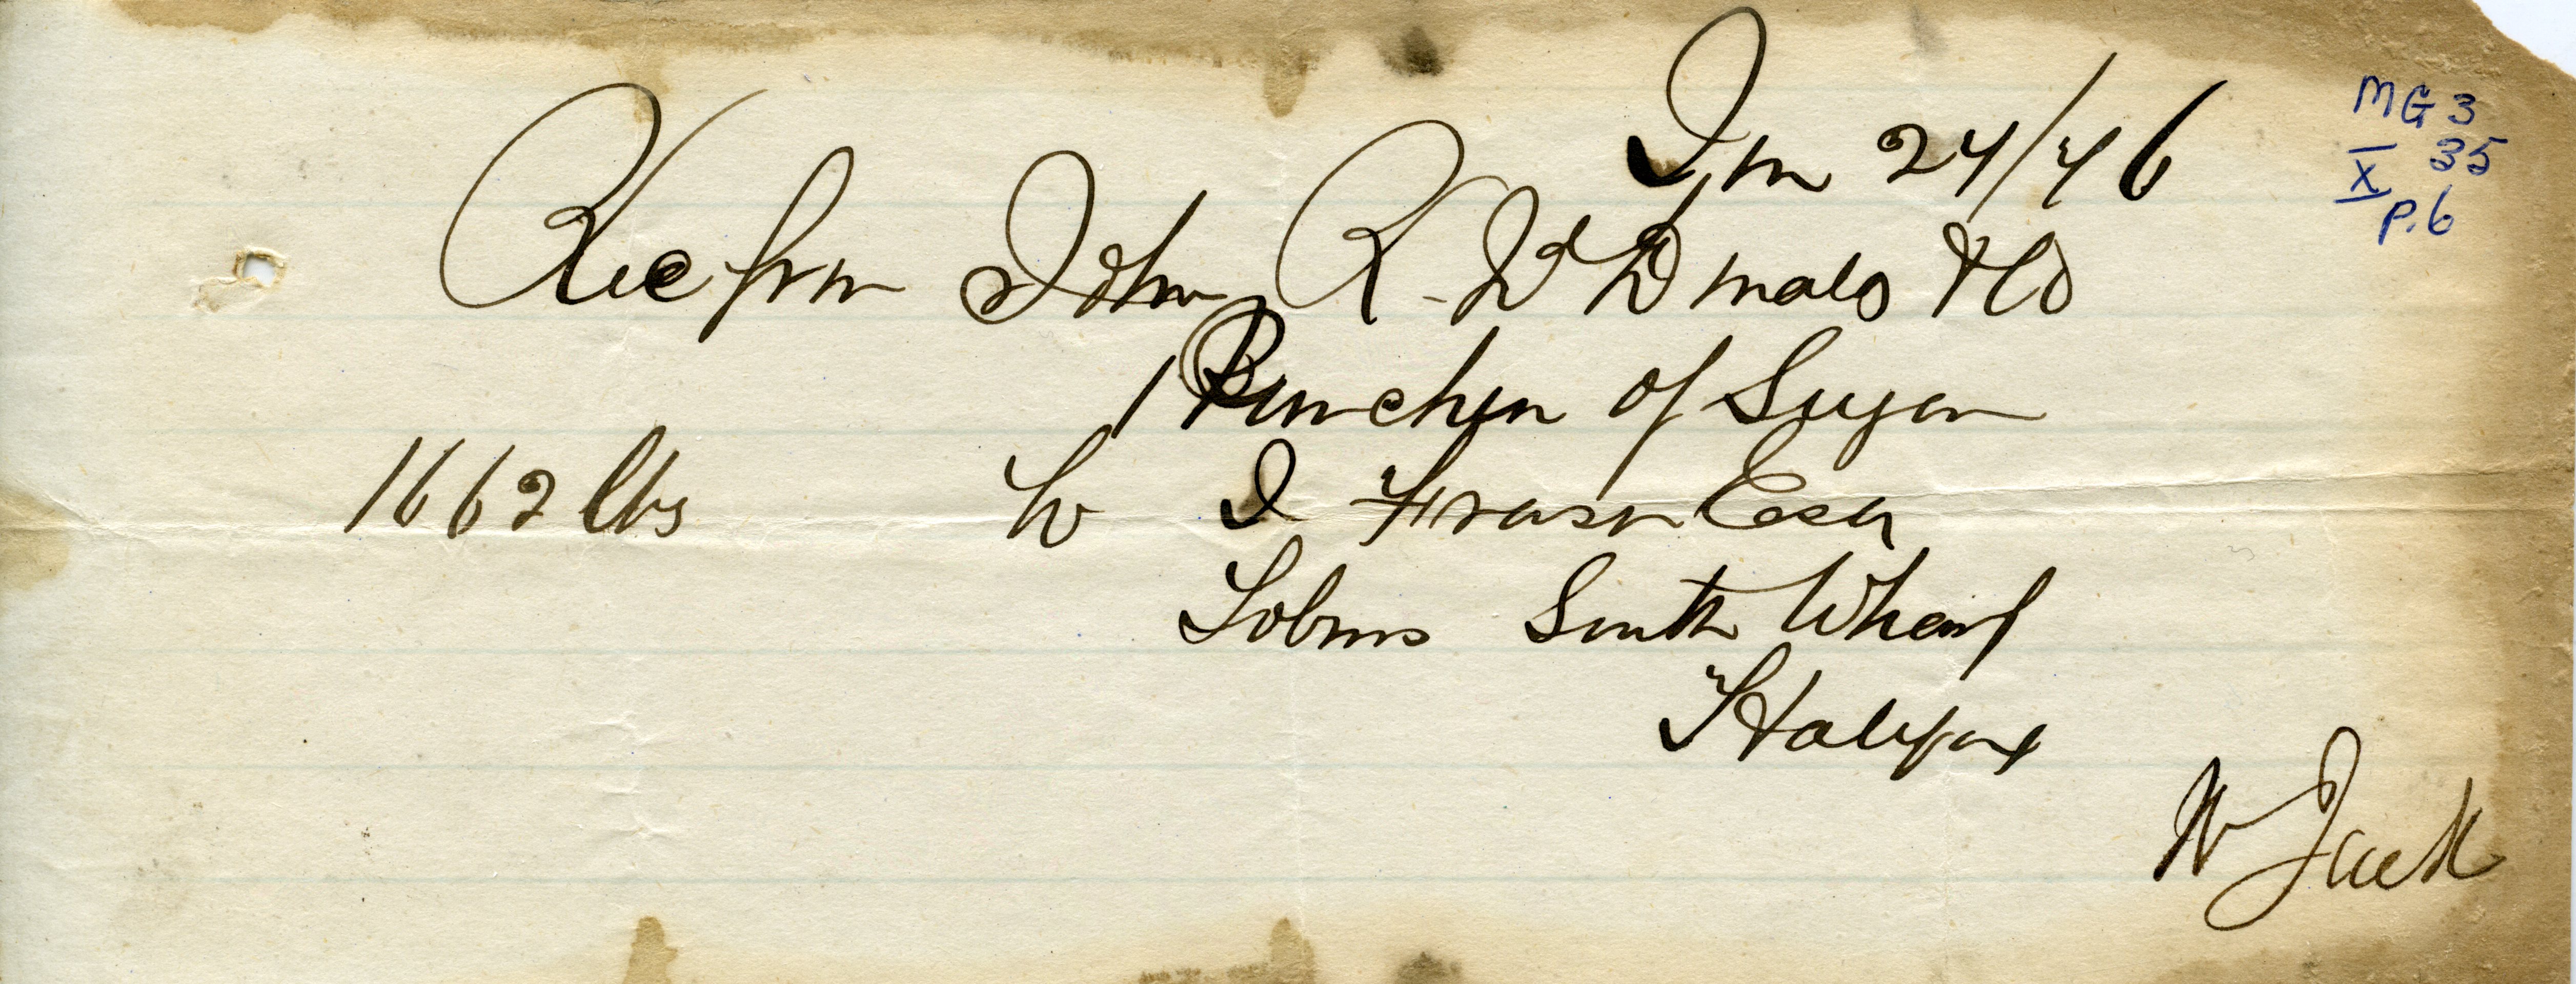 Jan 24/46
MG 3
X 35
p. 6
Rec from John R. McDonald & Co
1 Puncheon of Sugar
1662 lbs to J Fraser Esq
Tobins South Wharf
Halifax
W Jack